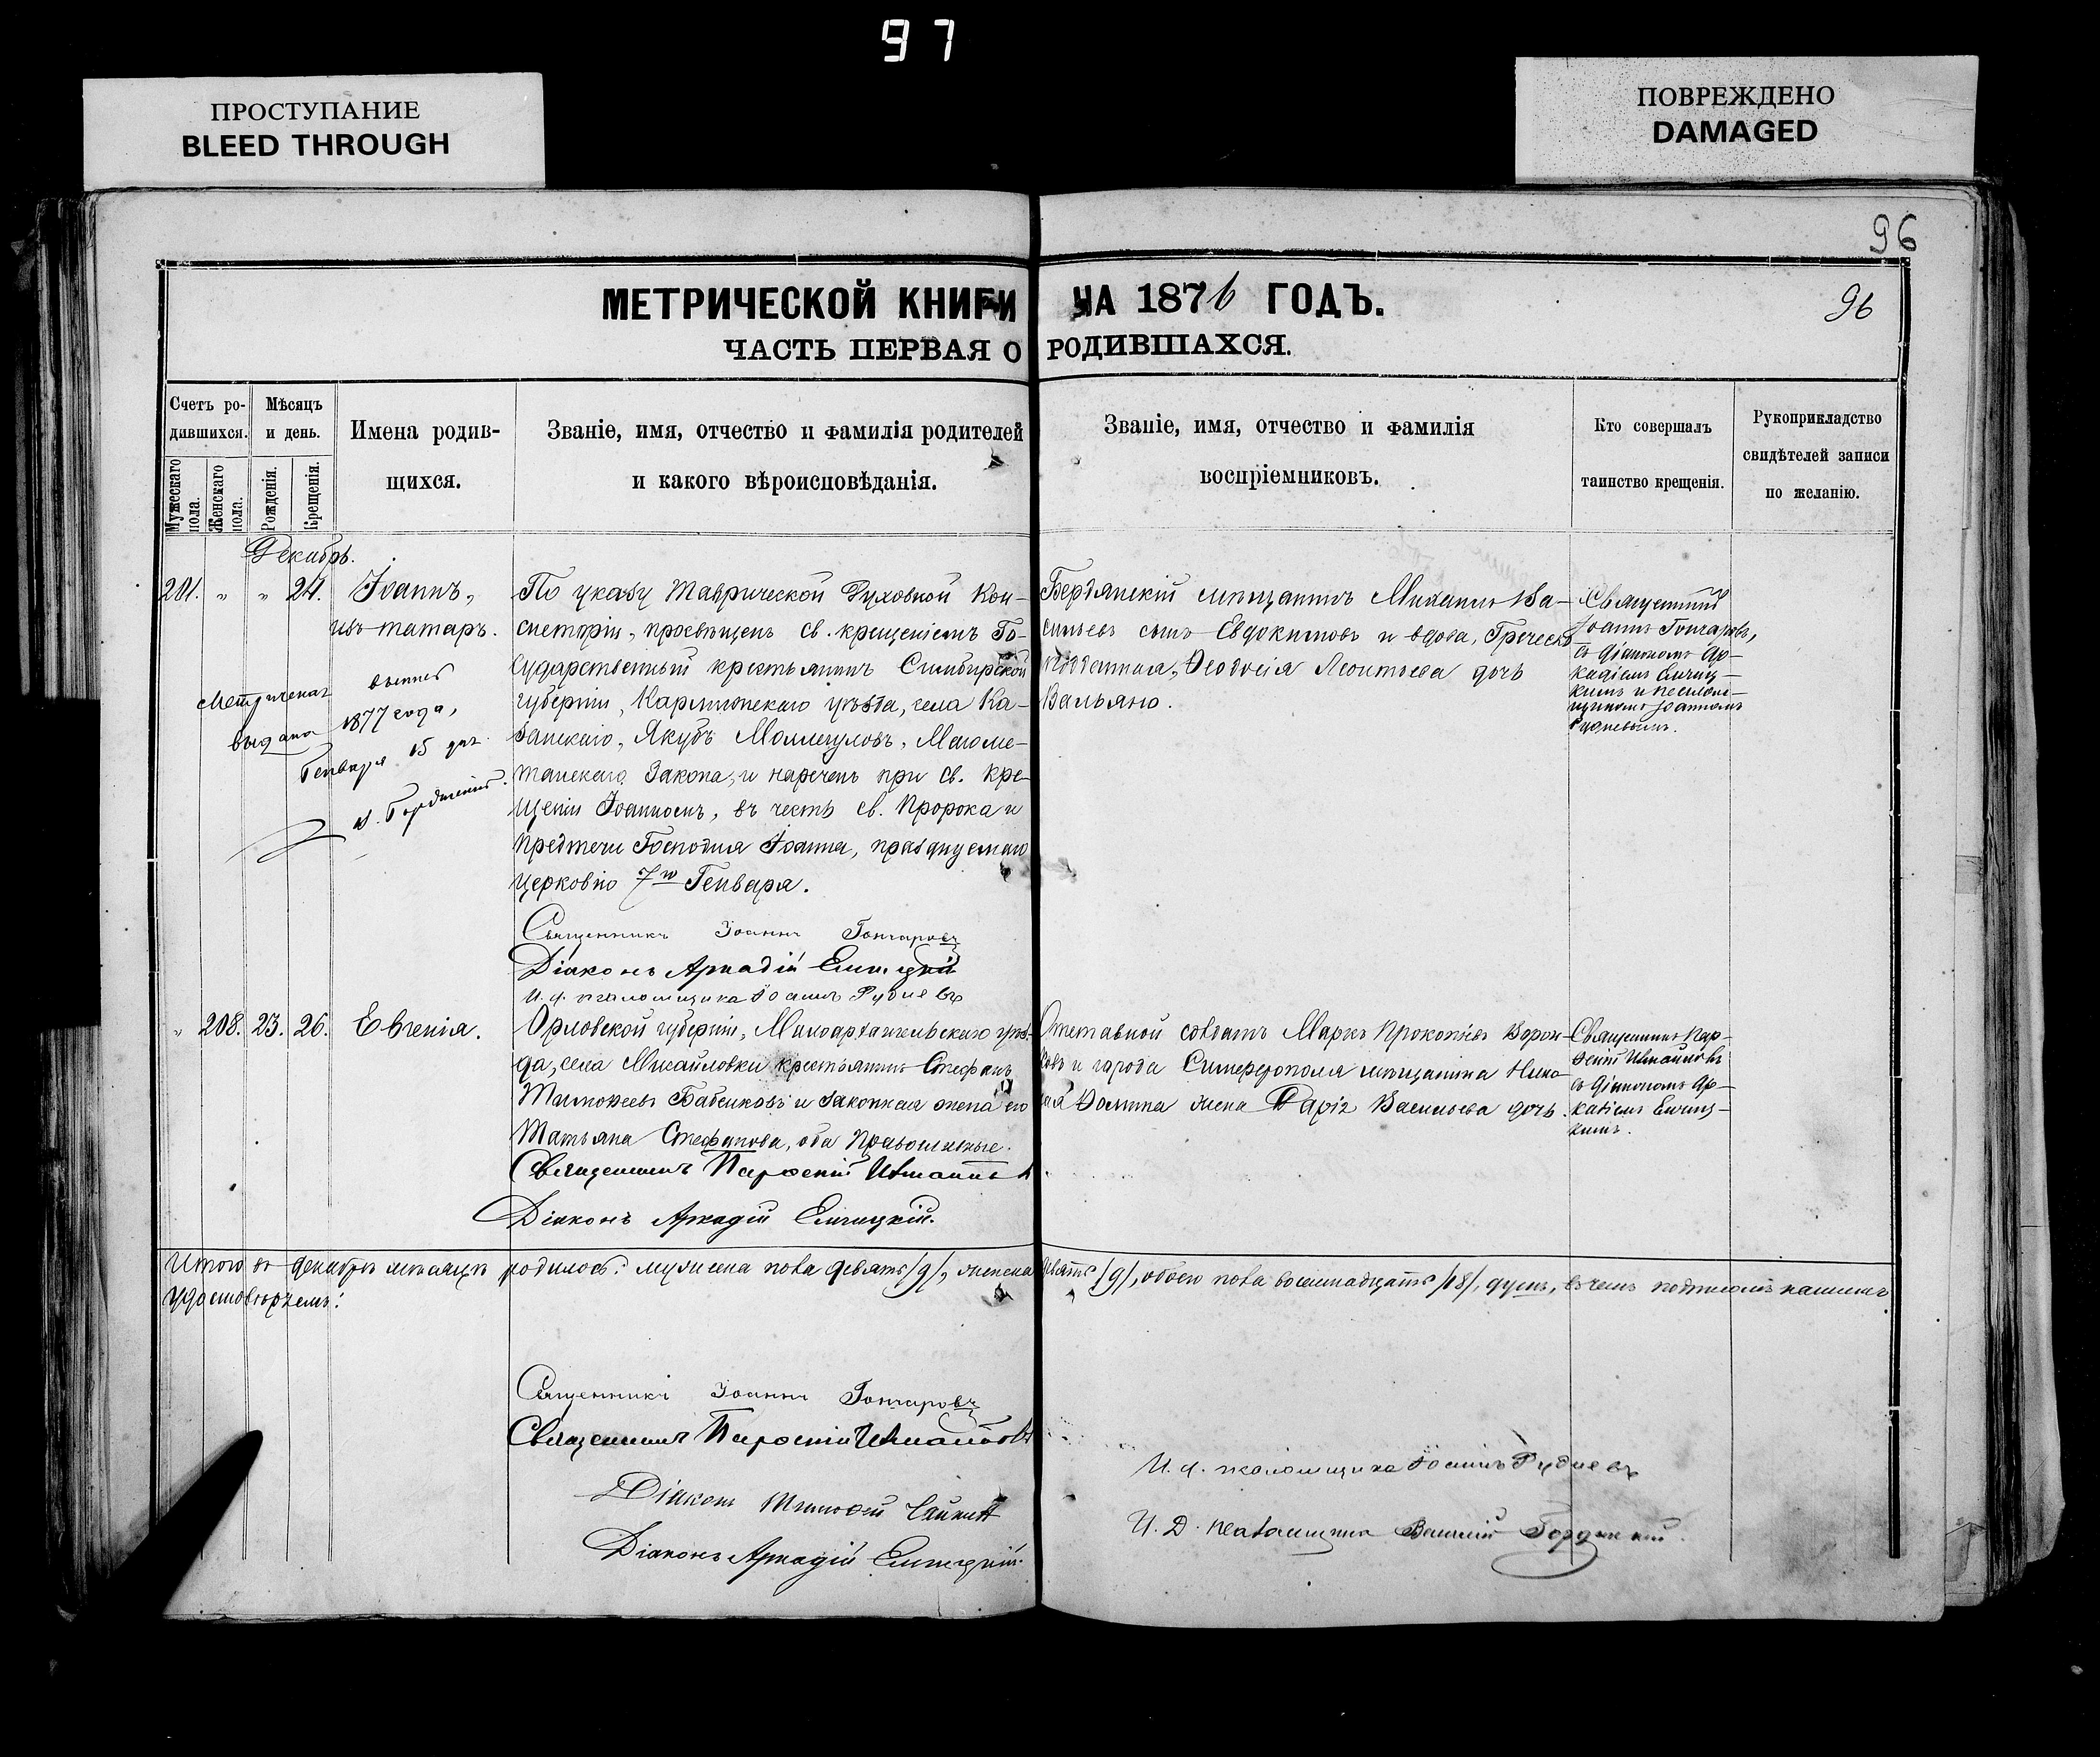 97
ПРОСТУПАНИЕ
BLEED THROUGH
ПОВРЕЖДЕНО
DAMAGED
96
МЕТРИЧЕСКОЙ КНИГИ НА 1876 ГОДЪ.
96
ЧАСТЬ ПЕРВАЯ О РОДИВШАХСЯ.
Счетъ ро-
дившихся.
Мужескаго пола.
Женскаго пола.
Мѣсяцъ
и день.
Рожденія.
Крещенія.
Имена родив-
щихся.
Званіе, имя, отчество и фамилія родителей
и какого вѣроисповѣданія.
Званіе, имя, отчество и фамилія
воспріемниковъ.
Кто совершалъ
таинство крещенія.
Рукоприкладство
свидѣтелей записи
по желанію.
Декабрь.
201. " " 24. Іоаннъ,
изъ татаръ.
Метрическая выпись
выдана 1877 года,
Генваря 15 дня
По указу Таврической Духовной Кон-
систоріи, просвѣщенъ св. крещеніемъ Го-
сударственный крестьянинъ Симбирской
губерніи, уѣзда, села Ка-
занскаго, Якубъ Моллагуловъ, Магоме-
танскаго Закона, и нареченъ при св. Кре-
щеніи Іоанномъ, въ честь св. Пророка и
Предтечи Господня Іоанна, празднуемаго
Церковію 7го Генваря.
Священникъ Іоаннъ Гончаровъ
Діаконъ Аркадій
И. д. псаломщика Іоаннъ Рудневъ
Бердянскій мѣщанинъ Михаилъ Ва-
сильевъ сынъ Евдокимовъ и вдова, Греческо
подданная, Ѳеодосія Леонтьева дочь
Вальяно.
Священникъ
Іоаннъ Гончаровъ,
съ діакономъ Ар-
кадіемъ
и псалом-
щикомъ Іоанномъ
Рудневымъ.
" 208. 23. 26. Евгенія.
Орловской губерніи, Малоархангельскаго уѣз-
да, села Михайловки крестьянинъ Стефанъ
Тимоѳеевъ Бабенковъ и законная жена его
Татьяна Стефанова, оба Православные.
Священникъ
Діаконъ Аркадій
Отставной солдатъ Маркъ Прокопіевъ Ворон-
ковъ и города Симферополя мѣщанина Нико-
лая жена Дарія Васильева дочь.
Священникъ
съ діакономъ Ар-
кадіемъ
Итого въ декабрѣ мѣсяцѣ родилось: мужеска пола девять /9/, женска девять /9/, обоего пола восемнадцать /18/, душъ, въ чемъ подписомъ нашимъ
удостовѣряемъ:
Священникъ Іоаннъ Гончаровъ
Священникъ
Діаконъ Тимоѳей
Діаконъ Аркадій
И. д. псаломщика Іоаннъ Рудневъ
И. Д. псаломщика Василій